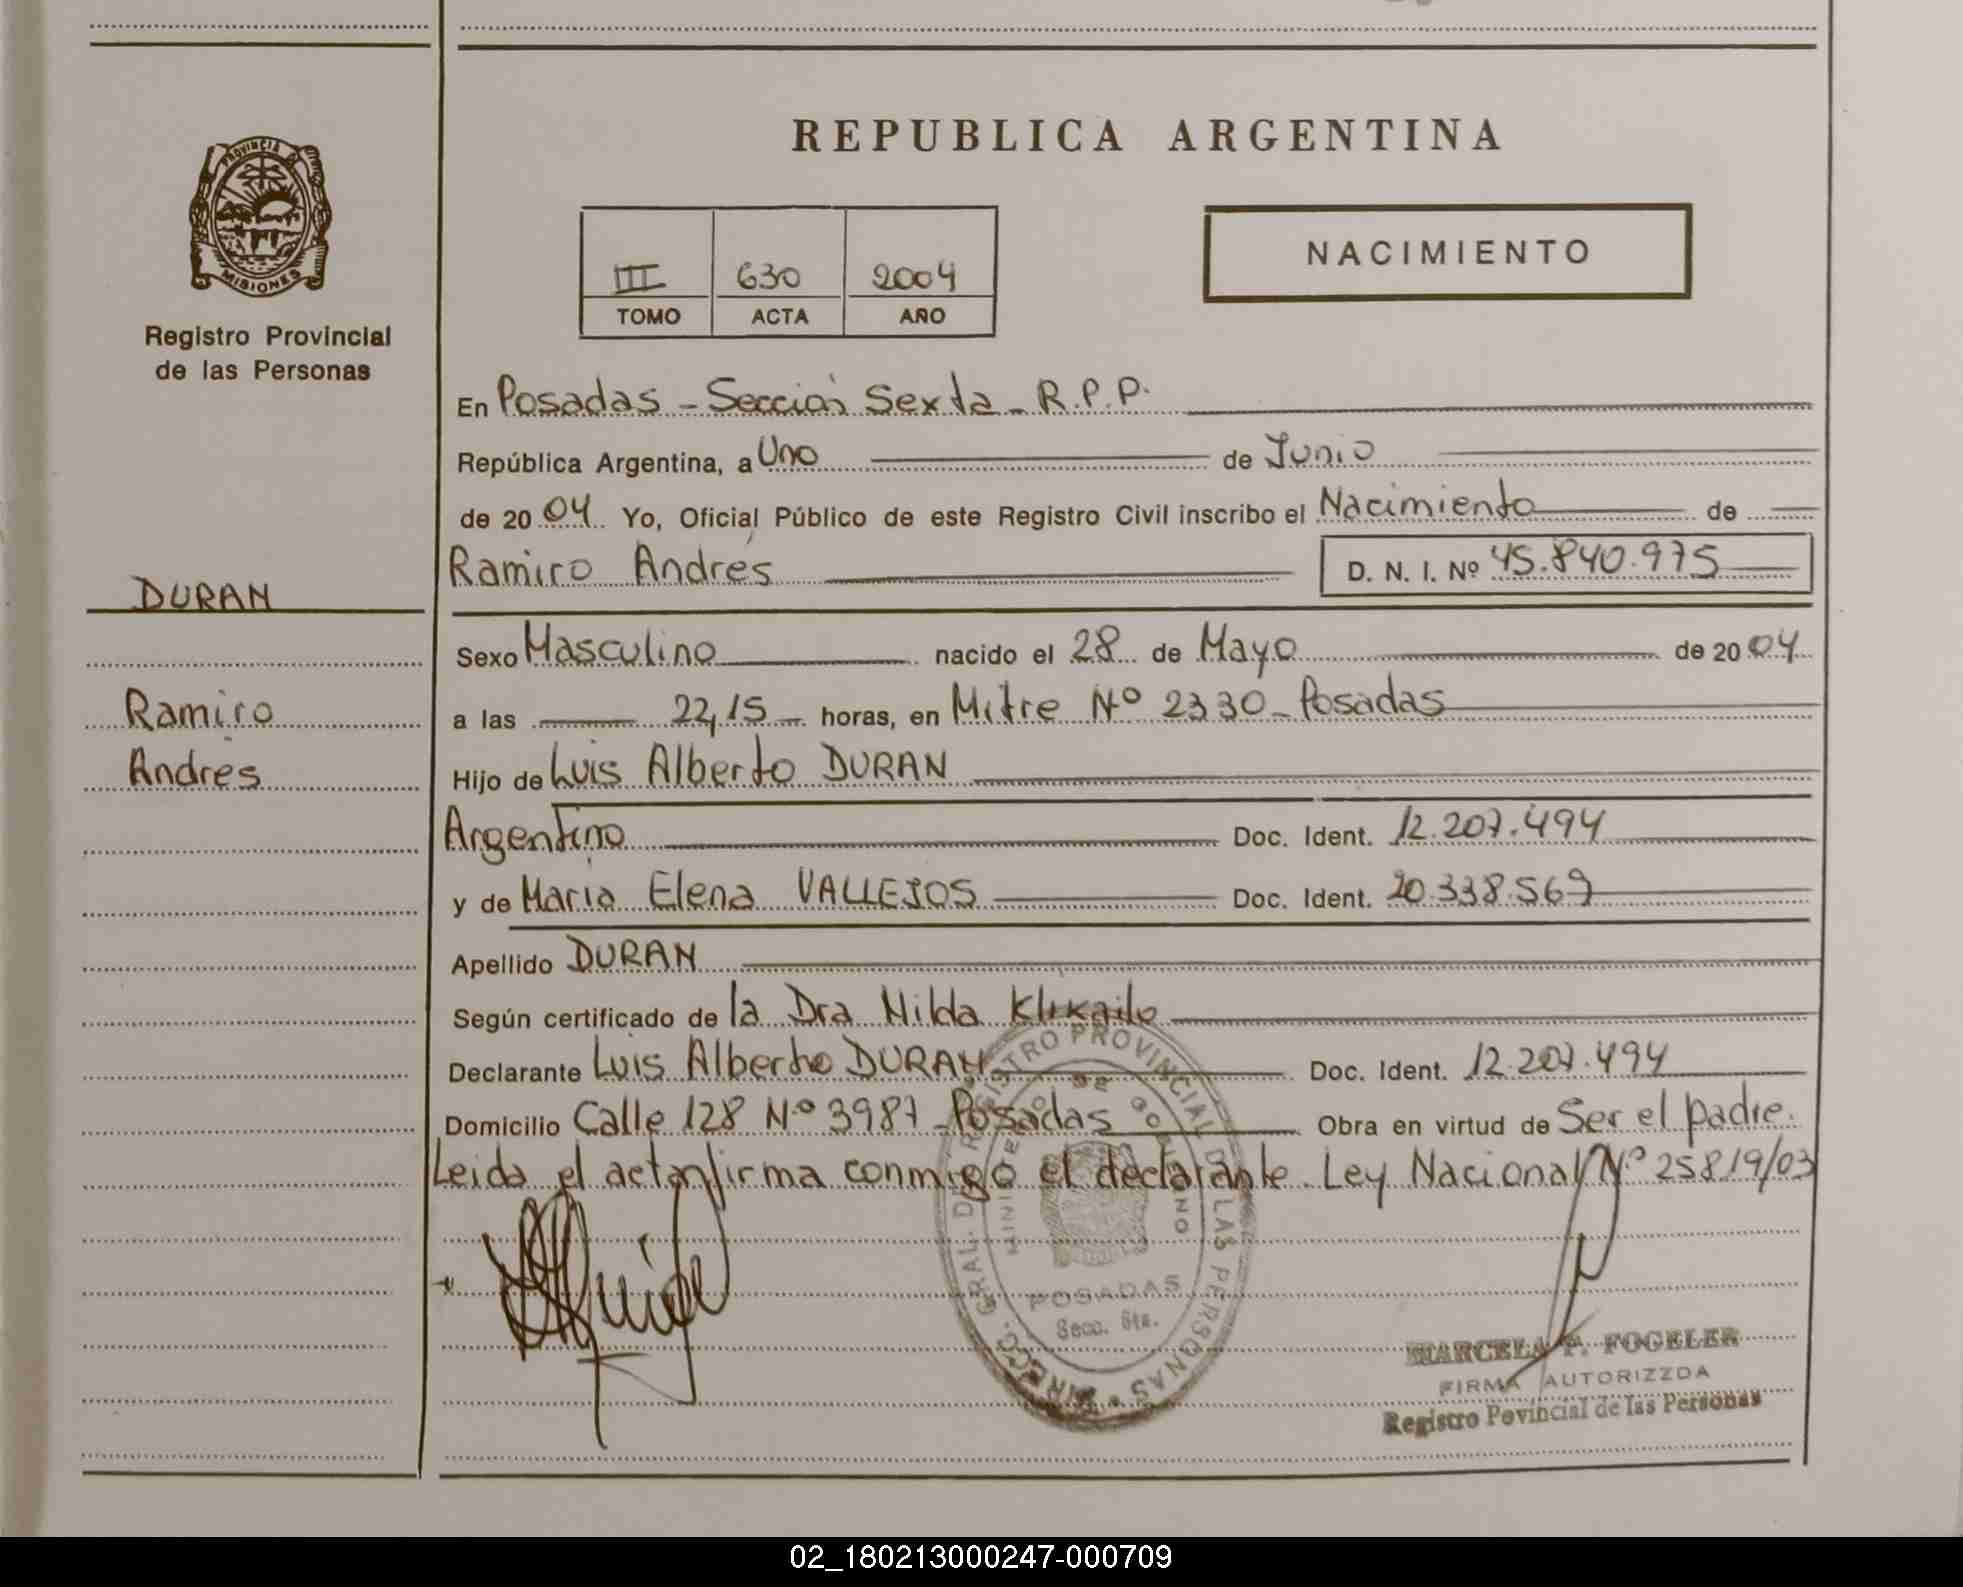 REPUBLICA ARGENTINA
PROVINCIA DE
MISIONES
Registro Provincial
de las Personas
III 630 2004
TOMO ACTA AÑO
NACIMIENTO
En Posadas - Sección Sexta - R.P.P.
República Argentina, a Uno de Junio
de 20 04 Yo, Oficial Público de este Registro Civil inscribo el Nacimiento de
Ramiro Andrés D. N. I. Nº 45.840.975
DURAN
Sexo Masculino nacido el 28 de Mayo de 20 04
Ramiro
a las 22,15 horas, en Mitre Nº 2330 - Posadas
Andrés
Hijo de Luis Alberto DURAN
Argentino Doc. Ident. 12.207.494
y de Maria Elena VALLEJOS Doc. Ident. 20.338.569
Apellido DURAN
Según certificado de la Dra Nilda
Declarante Luis Alberto DURAN Doc. Ident. 12.207.494
Domicilio Calle 128 Nº 3987 - Posadas Obra en virtud de Ser el padre.
Leida el acta firma conmigo el declarante. Ley Nacional Nº 25819/03
DIRECC. GRAL. DE REGISTRO PROVINCIAL DE LAS PERSONAS
MINISTERIO DE GOBIERNO
POSADAS
Secc. 6ta.
MARCELA P. FOGELER
FIRMA AUTORIZZDA
Registro Povincial de las Personas
02_180213000247-000709